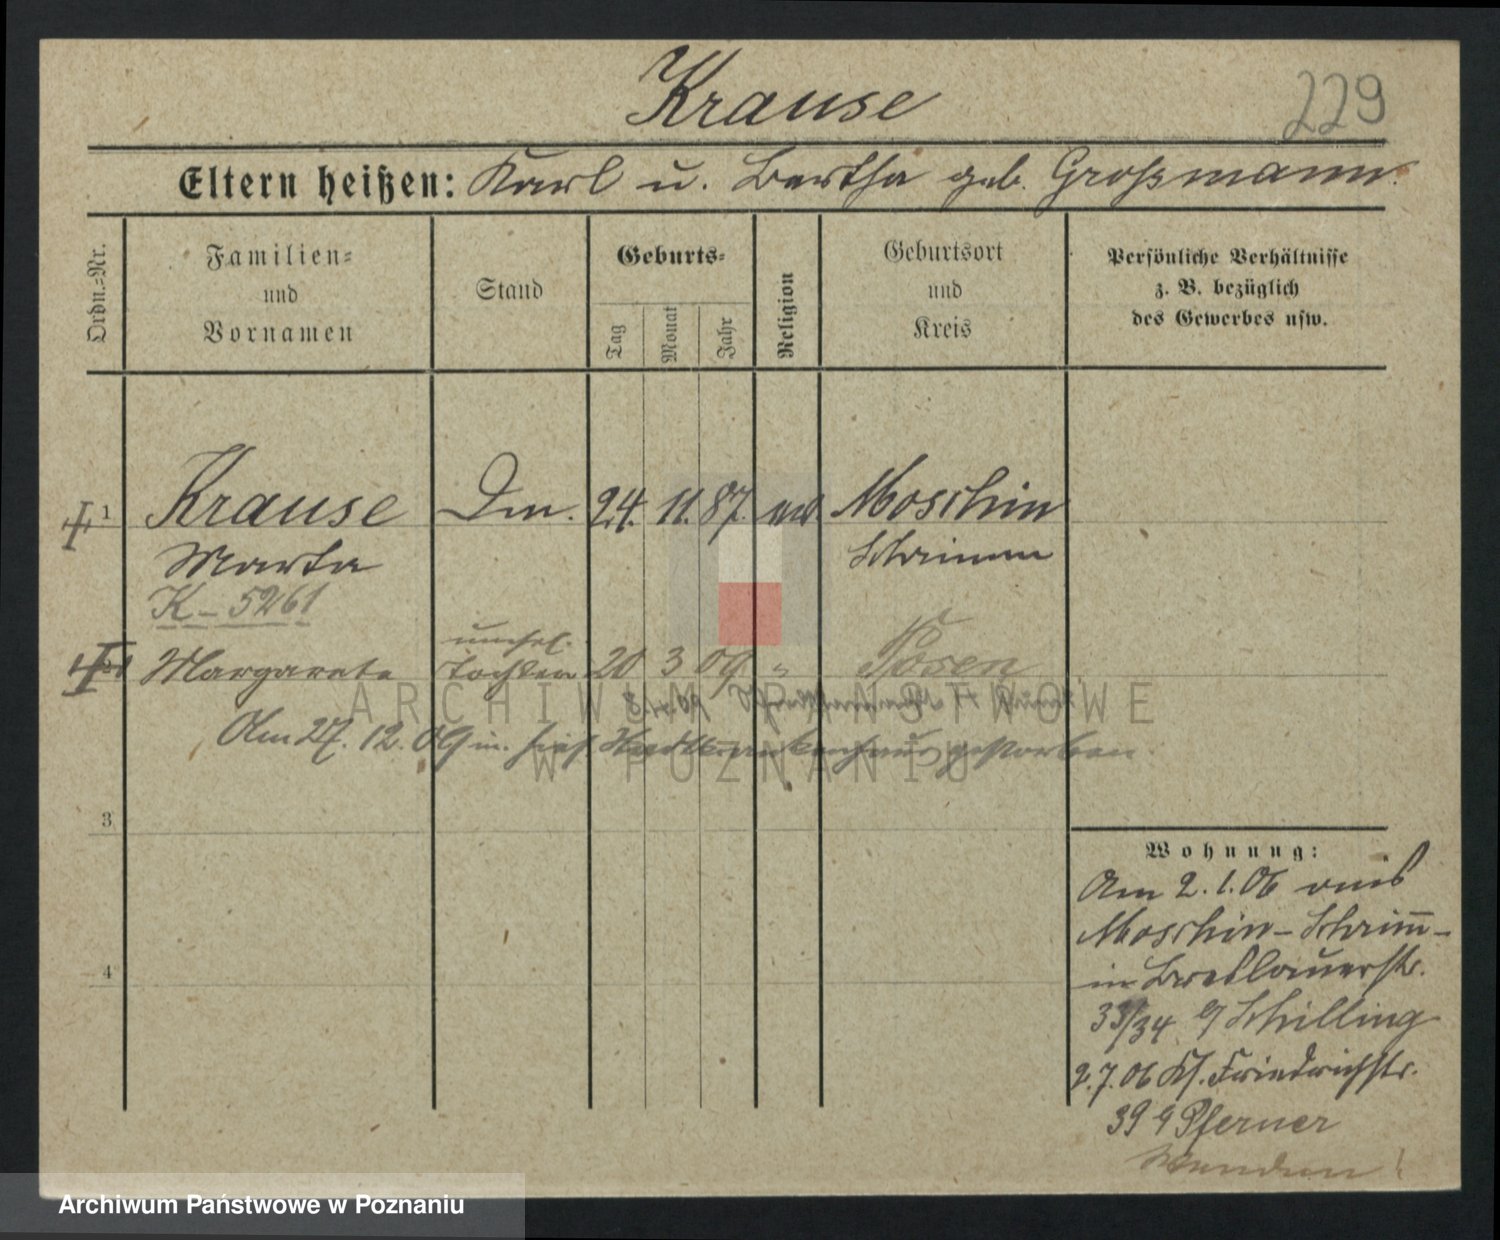 Krause
229
Eltern heißen: Karl u. Bertha geb. Großmann.
Ordn.-Nr.
Familien-
und
Vornamen
Stand
Geburts-
Tag
Monat
Jahr
Religion
Geburtsort
und
Kreis
Persönliche Verhältnisse
z. B. bezüglich
des Gewerbes usw.
1 Krause Dm. 24. 11. 87. ev. Moschin
Marta Schrimm
K-5261
unehel.
2 Margarete Tochter 20 3 09 " Posen
Am 27. 12. 09 im hies. Stadtkrankenhaus gestorben
3
4
Wohnung:
Am 2.1.06 aus
Moschin-Schrim̅-
in Breslauerstr.
33/34 Schilling
2.7.06 Kl. Friedrichstr.
39 Pferner
Wenden!
ARCHIWUM PAŃSTWOWE
W POZNANIU
Archiwum Państwowe w Poznaniu